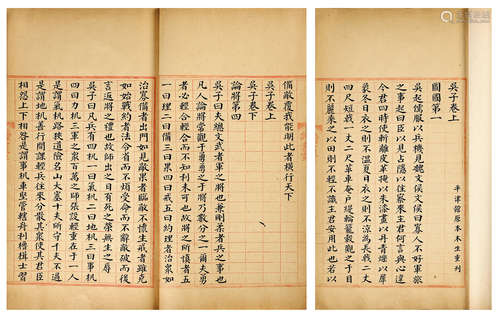 吳子卷上
平津館原本木生重刊
圖國第一
吳起儒服以兵機見魏文侯文侯曰寡人不好軍旅
之事起曰臣以見占隱以往察來主君何言與心違
今君四時使斬離皮革掩以朱漆畫以丹青爍以犀
象冬日衣之則不溫夏日衣之則不涼為長戟二丈
四尺短戟一丈二尺革車奄戶縵輪籠轂觀之于目
則不麗乘之以田則不輕不識主君安用此也若以
備敵覆我能明此者橫行天下
吳子卷上
吳子卷下
論將第四
吳子曰夫總文武者軍之將也兼剛柔者兵之事也
凡人論將常觀于勇勇之于將乃數分之一爾夫勇
者必輕合輕合而不知利未可也故將之所慎者五
一曰理二曰備三曰果四曰戒五曰約理者治眾如
治寡備者出門如見敵果者臨敵不懷生戒者雖克
如始戰約者法令省而不煩受命而不辭敵破而後
言返將之禮也故師出之日有死之榮無生之辱
吳子曰凡兵有四机一曰氣机二曰地机三曰事机
四曰力机三軍之眾百萬之師張設輕重在于一人
是謂氣机路狹道險名山大塞十夫所守千夫不過
是謂地机善行間諜輕兵往來分散其眾使其君臣
相怨上下相咎是謂事机車堅管轄舟利櫓楫士習